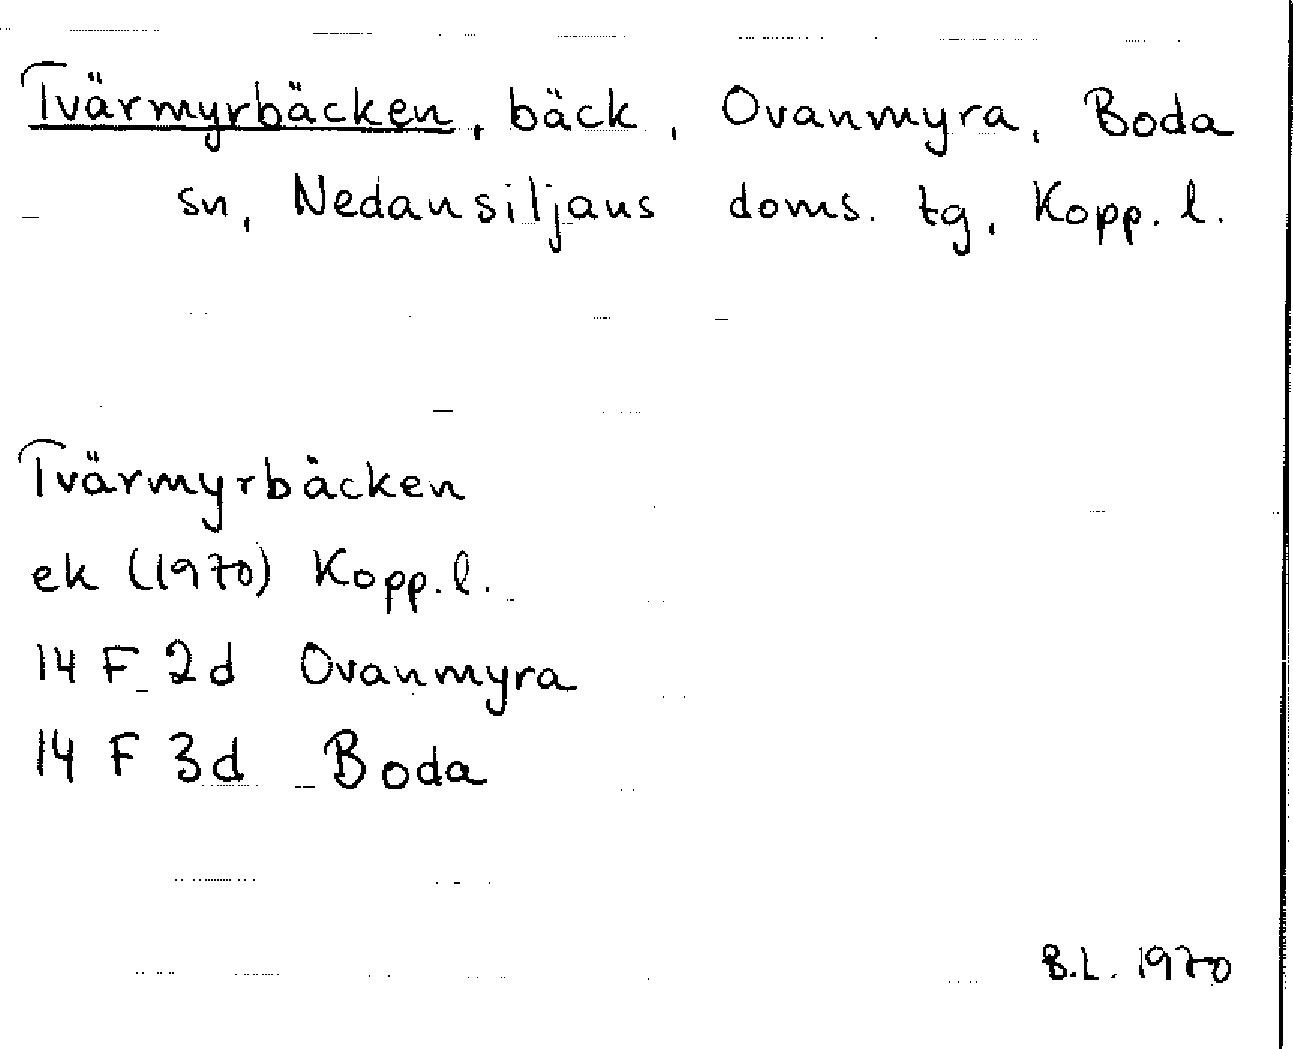 Tvärmyrbäcken, bäck, Ovanmyra, Boda
sn, Nedansiljans doms. tg, Kopp. l.
Tvärmyrbäcken
ek (1970) Kopp. l.
14 F 2d Ovanmyra
14 F 3d Boda
B.L. 1970